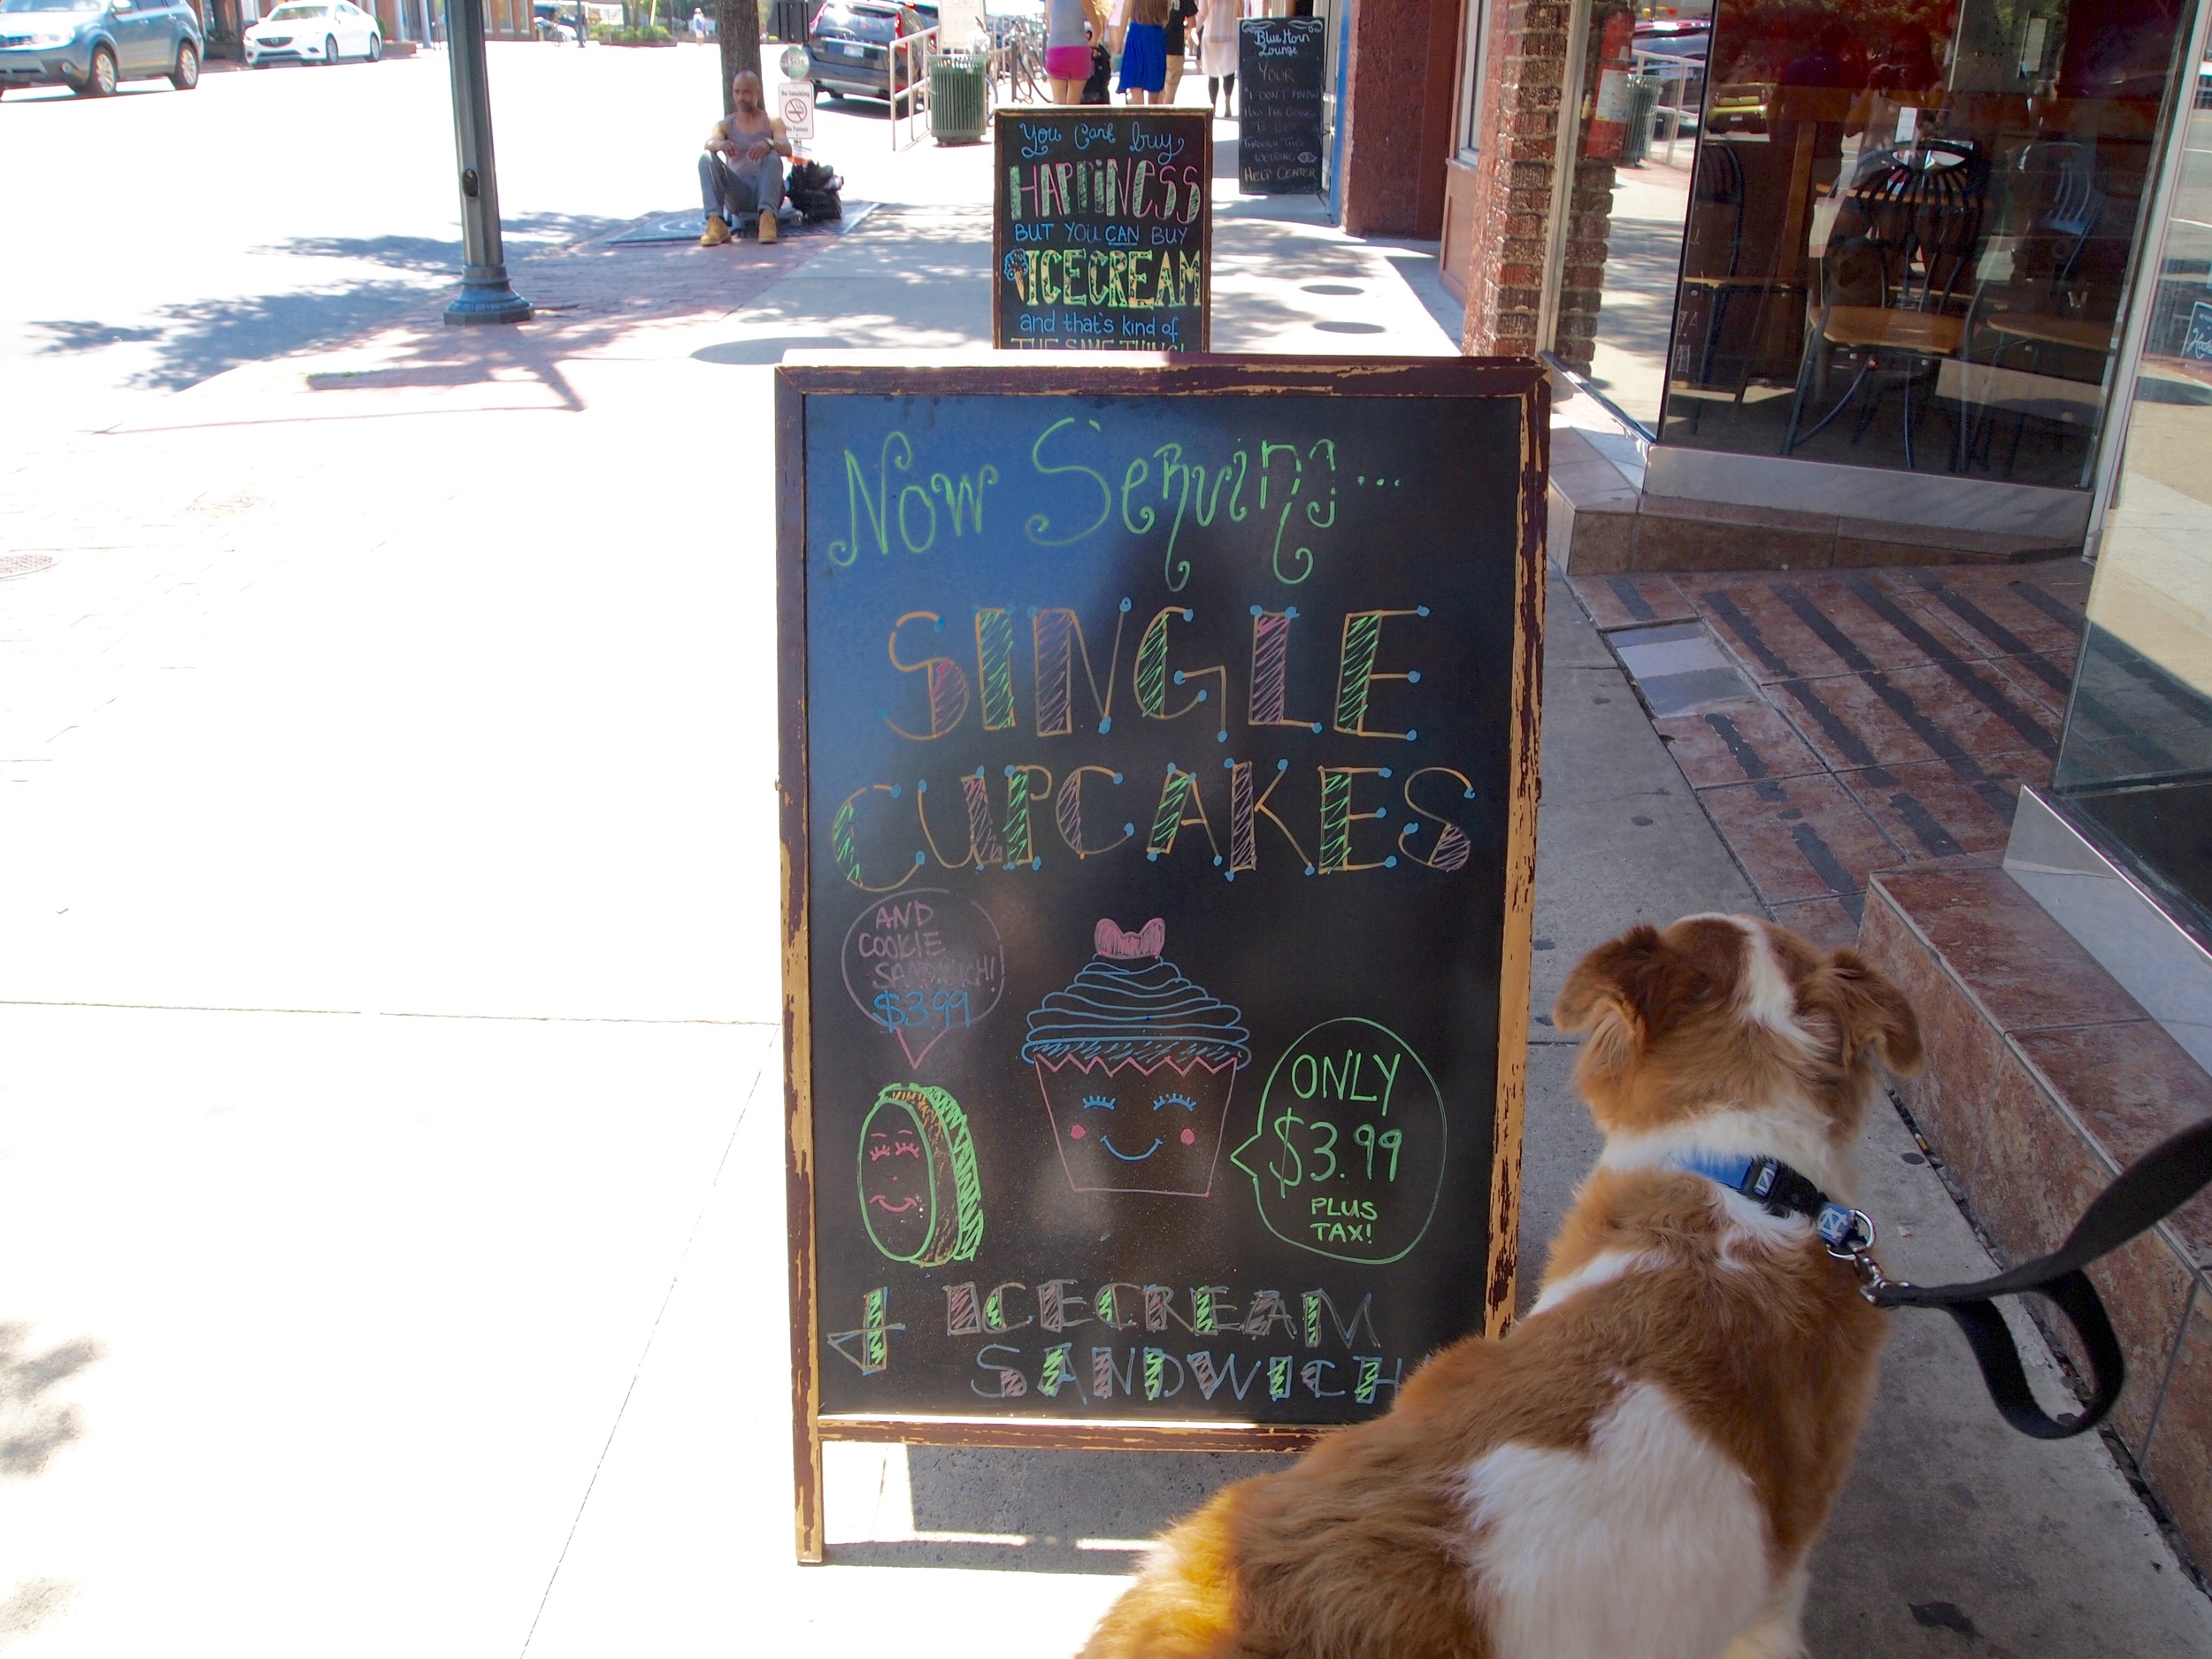 Blue Horn
Lounge
YOUR
"I DON'T KNOW
HOW I'M GOING
TO GET
THROUGH THIS
WEDDING"
HELP CENTER
No Smoking
You Can't buy
HAPPINESS
BUT YOU CAN BUY
ICECREAM
and that's kind of
THE SAME THING!
Now Serving...
SINGLE
CUPCAKES
AND
COOKIE
SANDWICH!
$3.99
ONLY
$3.99
PLUS
TAX!
+ ICECREAM
SANDWICH